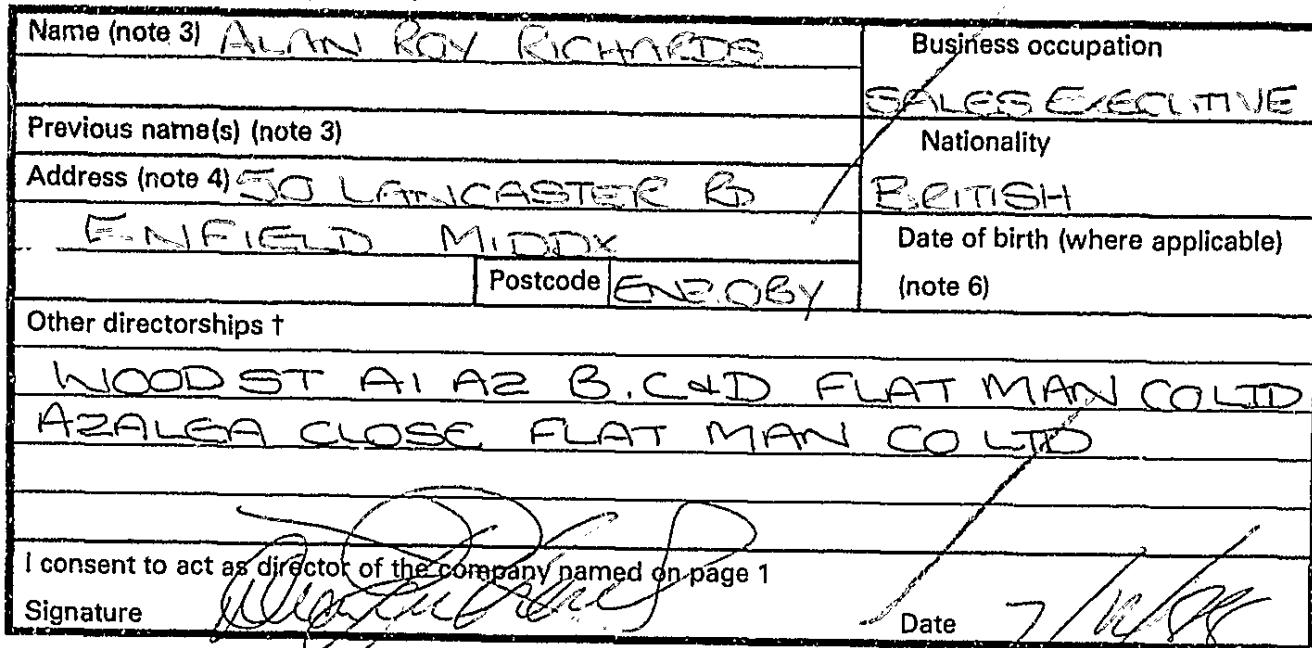 Name (note 3) ALAN ROY RICHARDS
Business occupation
SALES EXECUTIVE
Previous name(s) (note 3)
Nationality
Address (note 4) 50 LANCASTER RD
BRITISH
ENFIELD MIDDX
Date of birth (where applicable)
Postcode EN2 0BY
(note 6)
Other directorships †
WOOD ST A1 A2 B.C&D FLAT MAN CO LTD
AZALEA CLOSE FLAT MAN CO LTD
I consent to act as director of the company named on page 1
Signature
Date 7/ /88